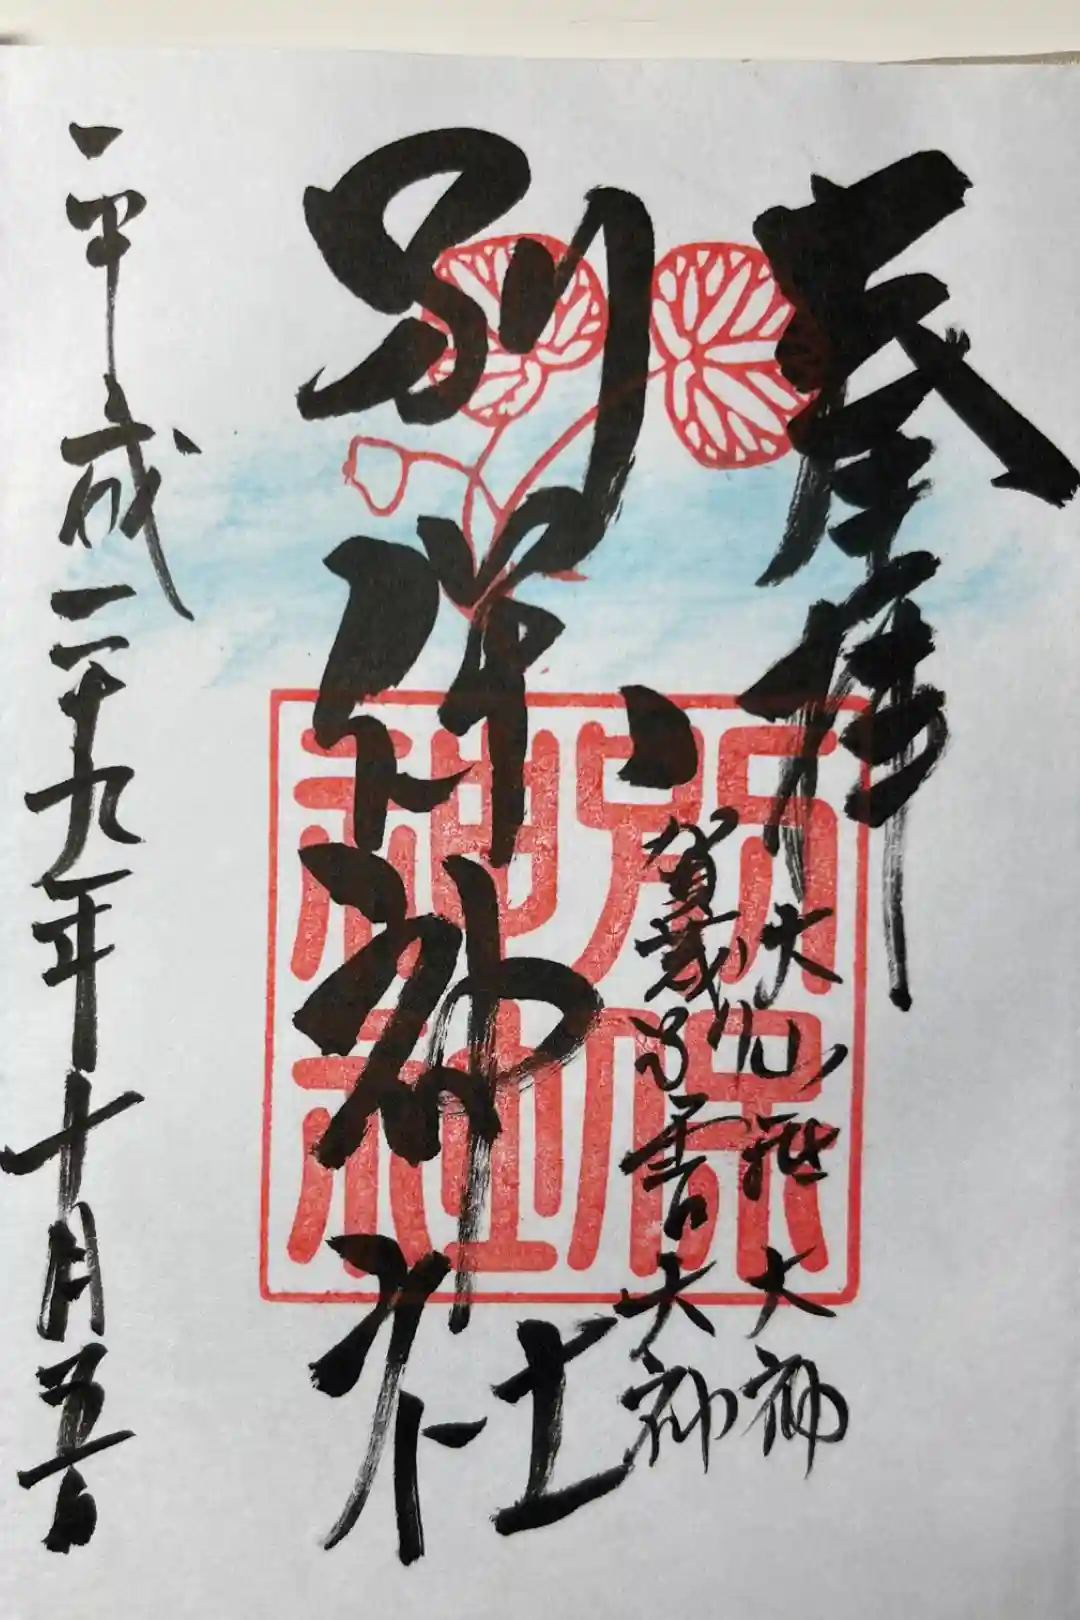 奉拝
大山祇大神
賀茂別雷大神
別保神社
平成二十九年十月五日
別保
神社